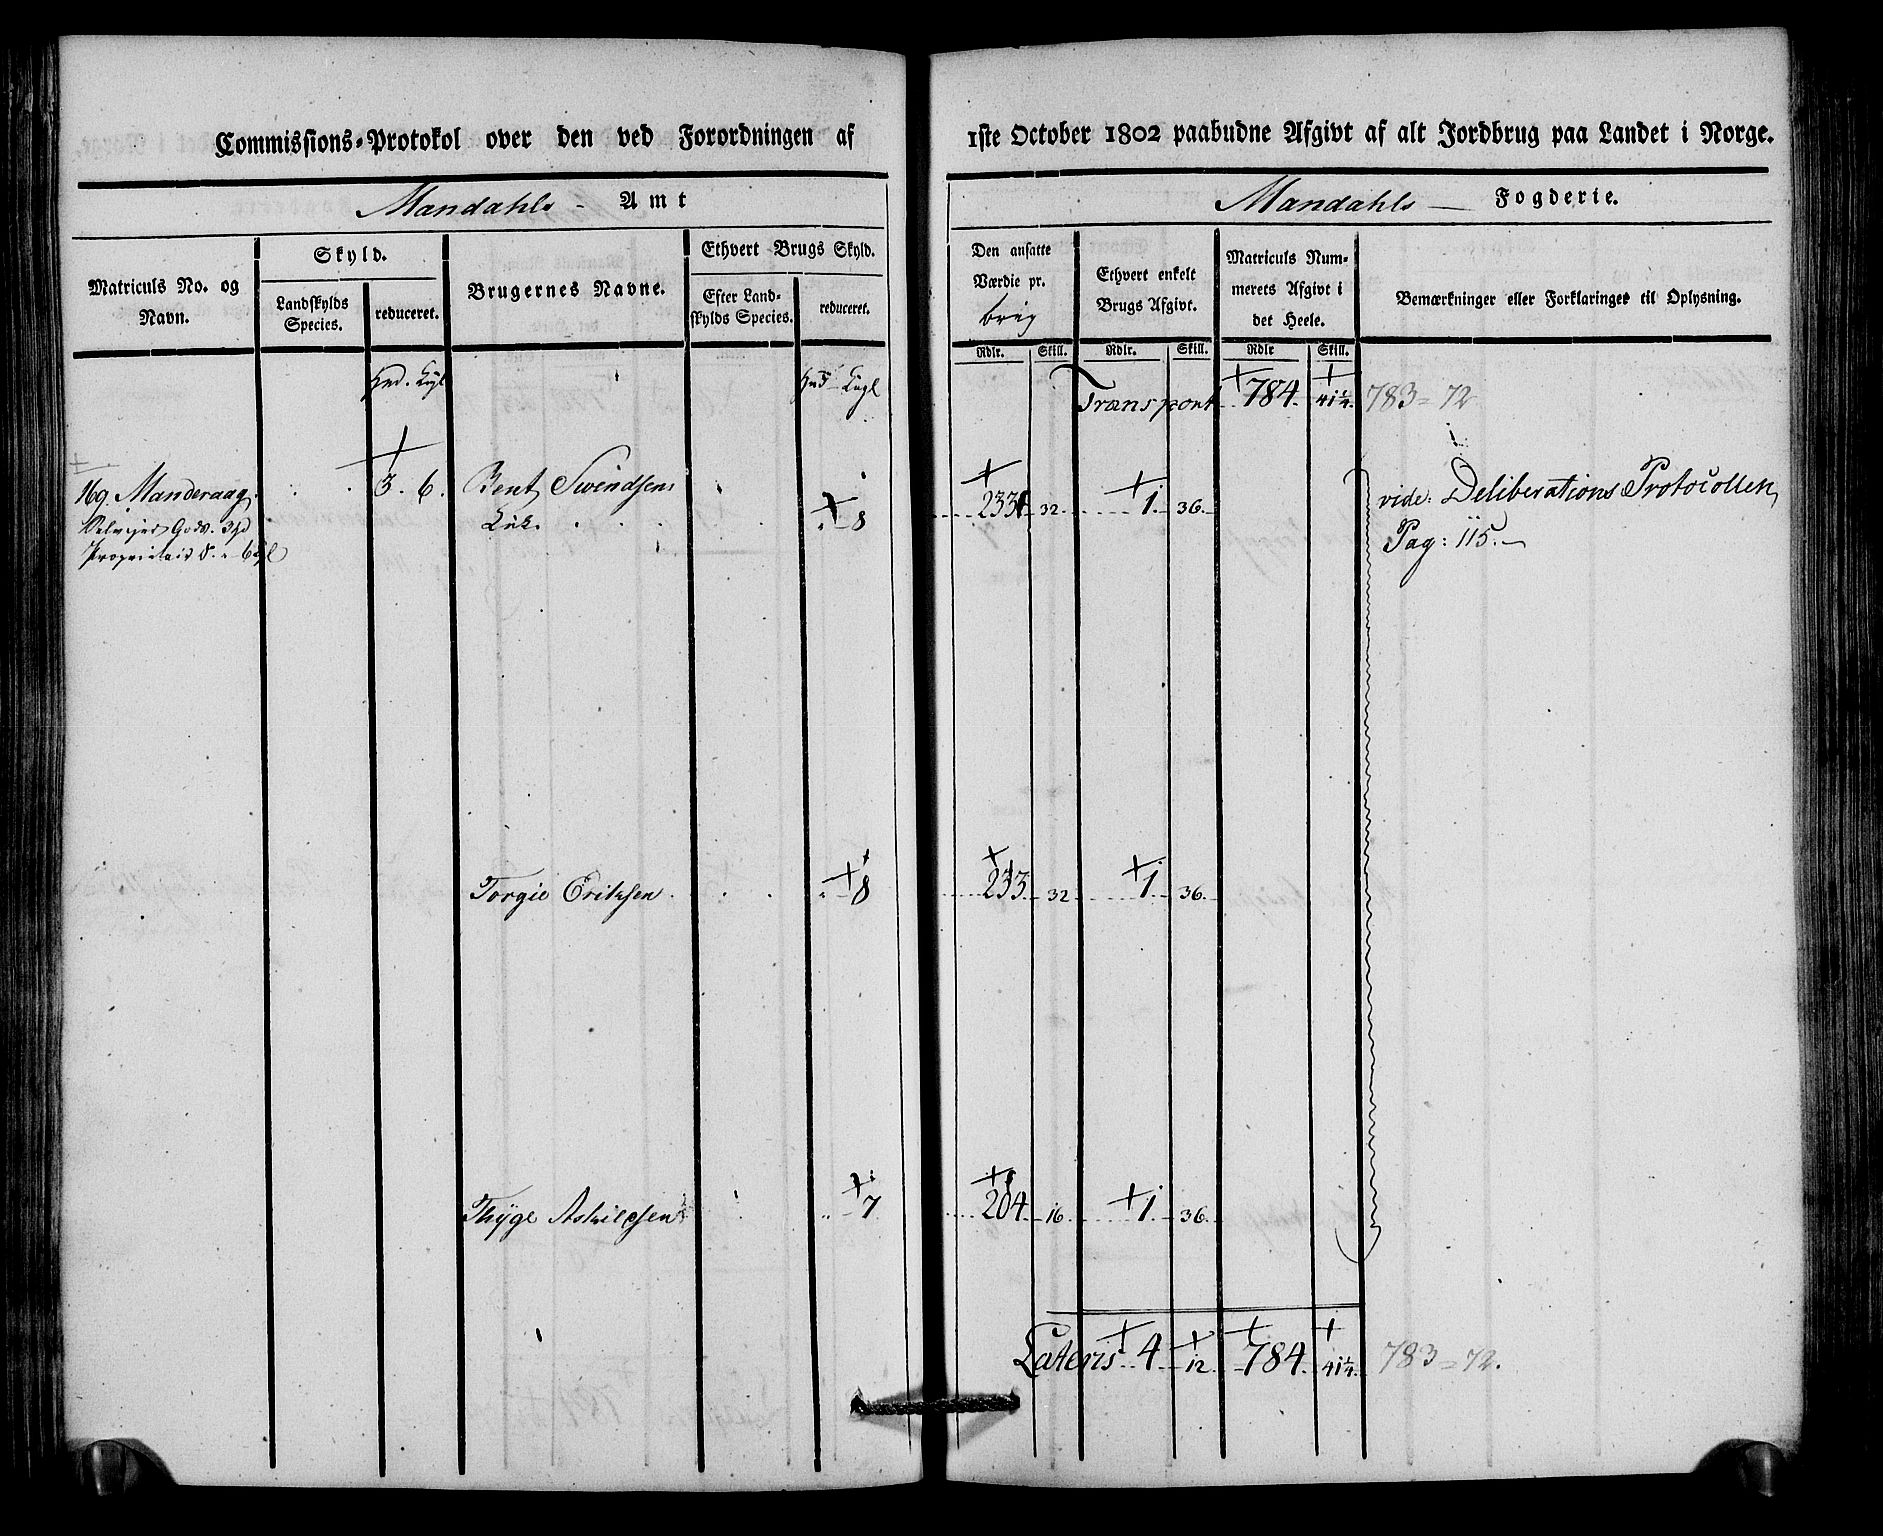 Commissions-Protokol over den ved Forordningen af
Mandahls - Amt
Matriculs No. og Navn.
Skyld.
Landskylds Species.
reduceret.
Brugernes Navne.
Ethvert Brugs Skyld.
Efter Landskylds Species.
reduceret.
Hud. Kgl
Hud Kagl
169. Manderaag. 3. 6. Bent Swendsens 8
Enk.
Godv. 3hd
Proprietair 6
Torgie Erichsen 8
Thyge Aslachsen 7
1ste October 1802 paabudne Afgivt af alt Jordbrug paa Landet i Norge.
Mandahls — Fogderie.
Den ansatte Værdie pr.
brug
Ethvert enkelt Brugs Afgivt.
Matriculs Nummerets Afgivt i det Heele.
Bemærkninger eller Forklaringer til Oplysning.
Rdlr. Skill. Rdlr. Skill. Rdlr Skill.
Transport 784. 41¼. 783 = 72
233 32 1. 36. vide: Deliberations Protocollen
Pag: 115.
233 32 1. 36.
204 16 1. 36.
Lateris 4 12. 784. 41¼. 783 = 72.